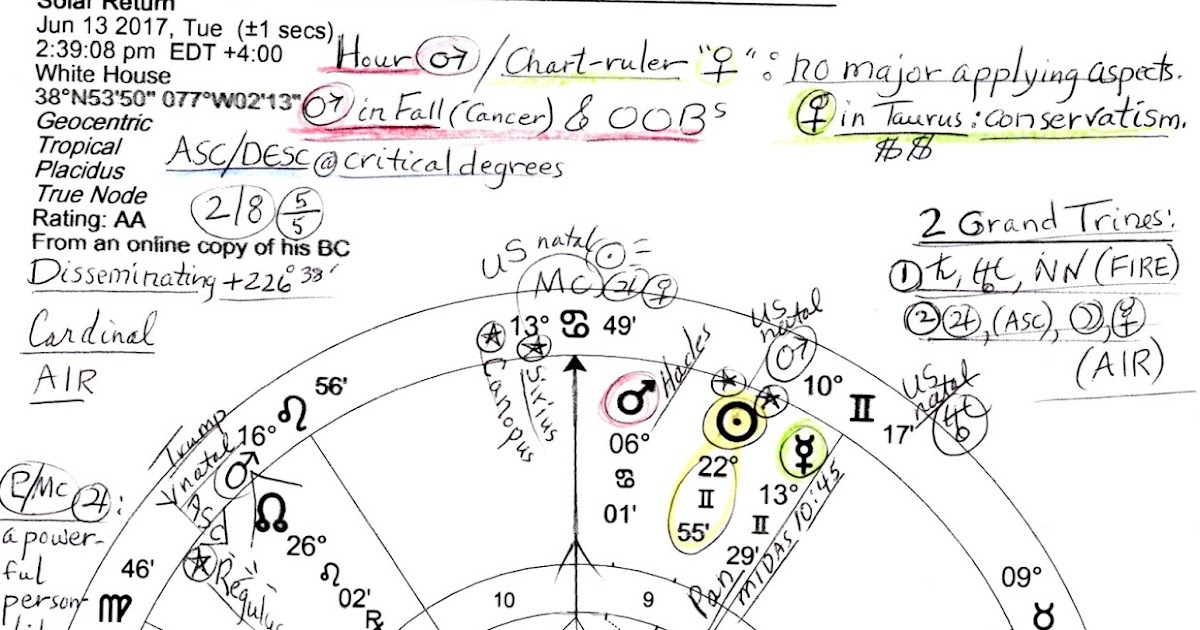 Solar Return
Jun 13 2017, Tue (±1 secs)
2:39:08 pm EDT +4:00
White House
38°N53'50" 077°W02'13"
Geocentric
Tropical
Placidus
True Node
Rating: AA
From an online copy of his BC
Hour ♂ / Chart-ruler "♀": no major applying aspects.
♂ in Fall (Cancer) & OOBs
♀ in Taurus: conservatism.
$$
ASC/DESC @ critical degrees
2/8 5/5
Disseminating +226°38'
Cardinal
AIR
2 Grand Trines:
① ♄, ♅, NN (FIRE)
② ♃, (ASC), ☽, ♀
(AIR)
US natal ☉ =
MC ♃ ♀
13° ♋ 49'
Canopus
Sirius
♂ Hades
06°
♋
01'
US natal
♂
☉
22°
♊
55'
10° ♊ 17'
US natal
♅
☿
13°
♊
29'
Pan
MIDAS 10:45
56'
♌
16°
Trump
natal
ASC
♂
☊
26°
♌
02'
℞
Regulus
P/MC ♃:
a power-
ful
person-
46'
♍
10
9
09°
♉